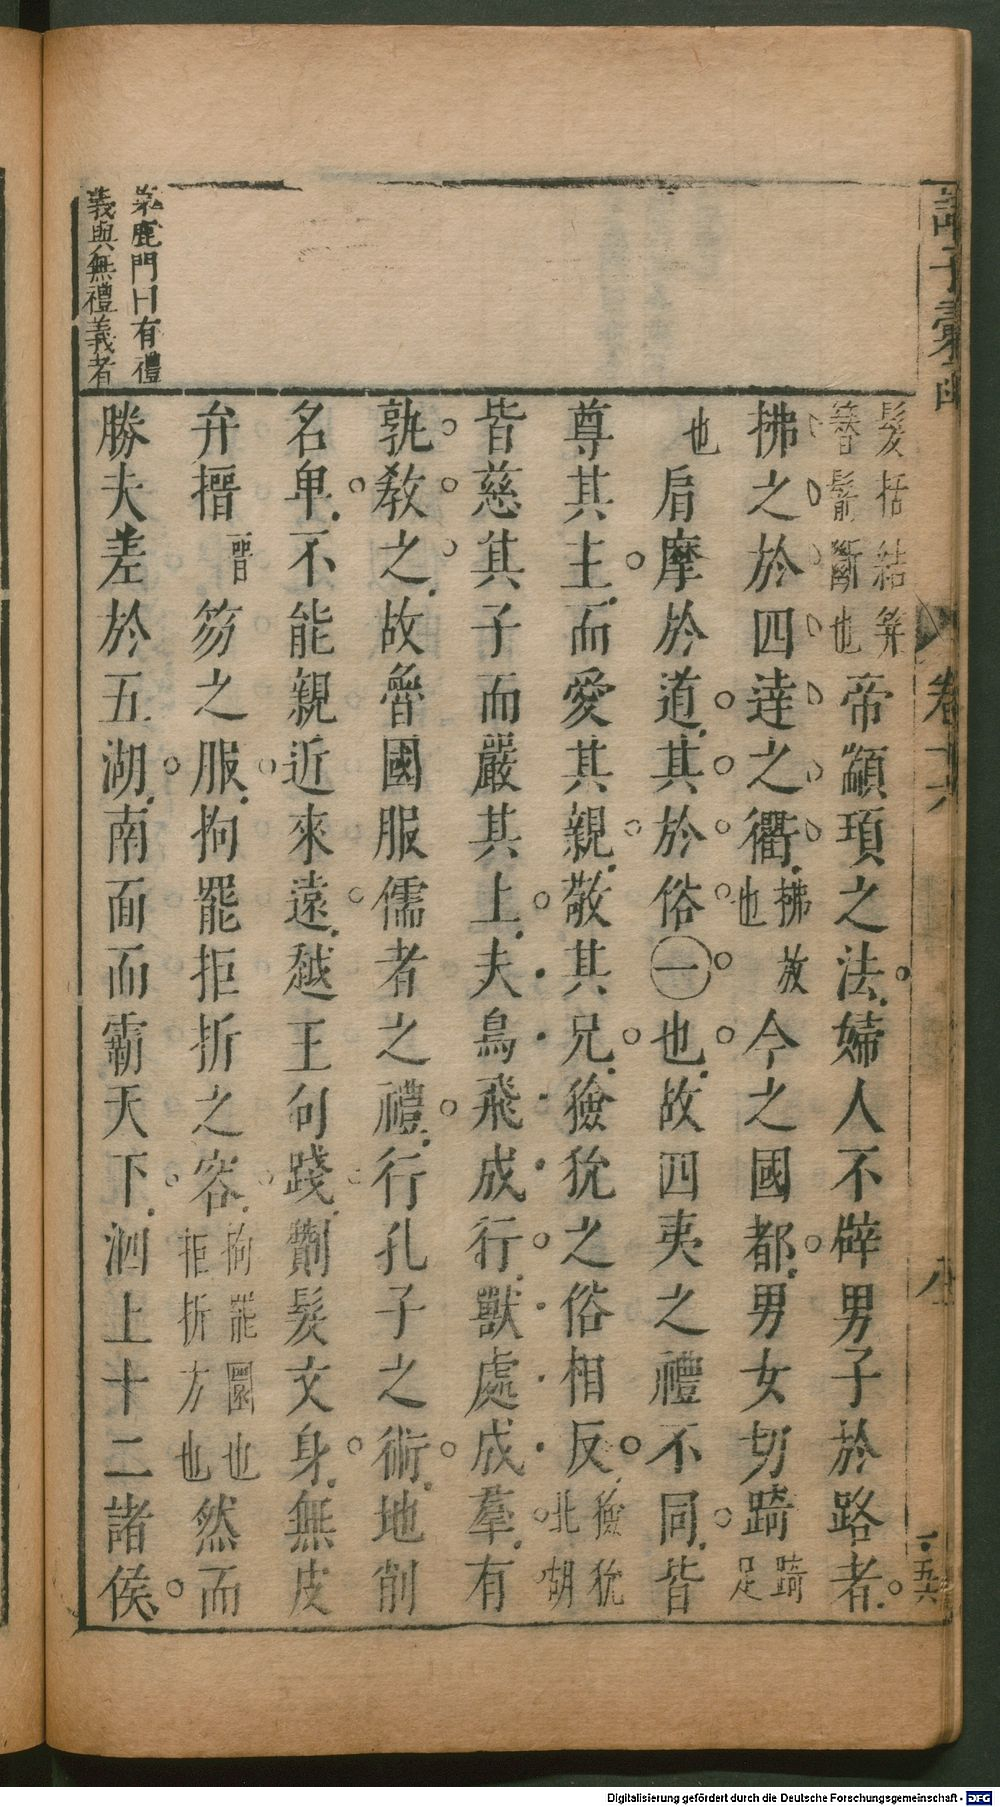 諸子彙函
卷十六
八
五六
茅鹿門曰有禮
義與無禮義者
髮括結筓
簪鬋斷也
帝顓頊之法婦人不辟男子於路者
拂之於四逹之衢
拂放
也
今之國都男女切踦
踦
足
也
肩摩於道其於俗一也故四夷之禮不同皆
尊其主而愛其親敬其兄獫狁之俗相反
獫狁
北胡
皆慈其子而嚴其上夫鳥飛成行獸處成羣有
孰教之故魯國服儒者之禮行孔子之術地削
名卑不能親近來遠越王句踐劗髮文身無皮
弁搢
音晉
笏之服拘罷拒折之容
拘罷圜也
拒折方也
然而
勝夫差於五湖南面而霸天下泗上十二諸侯
Digitalisierung gefördert durch die Deutsche Forschungsgemeinschaft - DFG